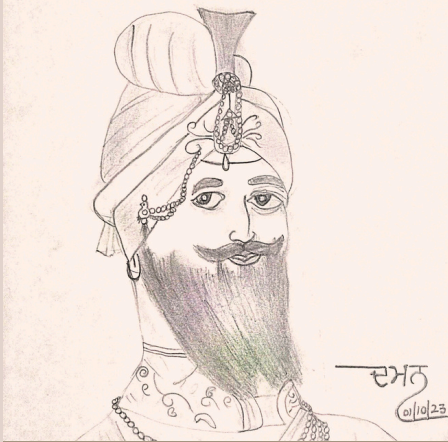 ਦਮਨ
01/10/23